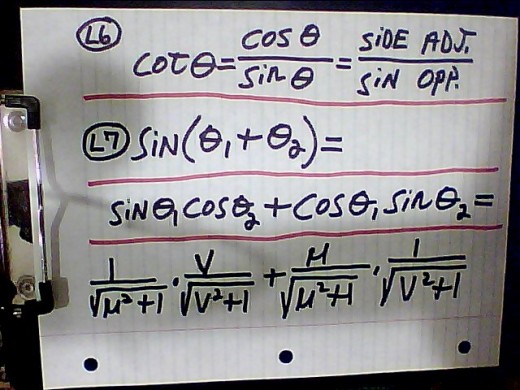 L6 cot θ = cos θ / sin θ = SIDE ADJ. / SIN OPP.
L7 SIN(θ₁ + θ₂) =
SIN θ₁ COS θ₂ + COS θ₁ SIN θ₂ =
1/√(μ²+1) · V/√(V²+1) + μ/√(μ²+1) · 1/√(V²+1)